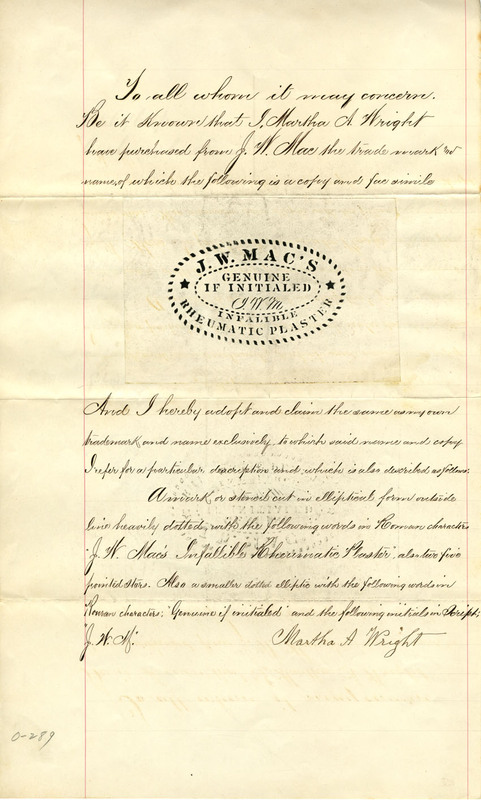 To all whom it may concern.
Be it Known that I, Martha A Wright
have purchased from J. W. Mac the trade mark and
name, of which the following is a copy and fac simile
J. W. MAC'S
GENUINE
IF INITIALED
J. W. M.
INFALIBLE
RHEUMATIC PLASTER
And I hereby adopt and claim the same as my own
trademark and name exclusively, to which said name and copy
I refer for a particular description and which is also described as follows.
A mark or stencil cut in elliptical form outside
line heavily dotted, with the following words in Roman characters
"J. W. Mac's Infallible Rheumatic Plaster", also two five
pointed stars. Also a smaller dotted elliptic with the following words in
Roman characters; "Genuine if initialed" and the following initials in Script;
J. W. M."
Martha A Wright
0-289